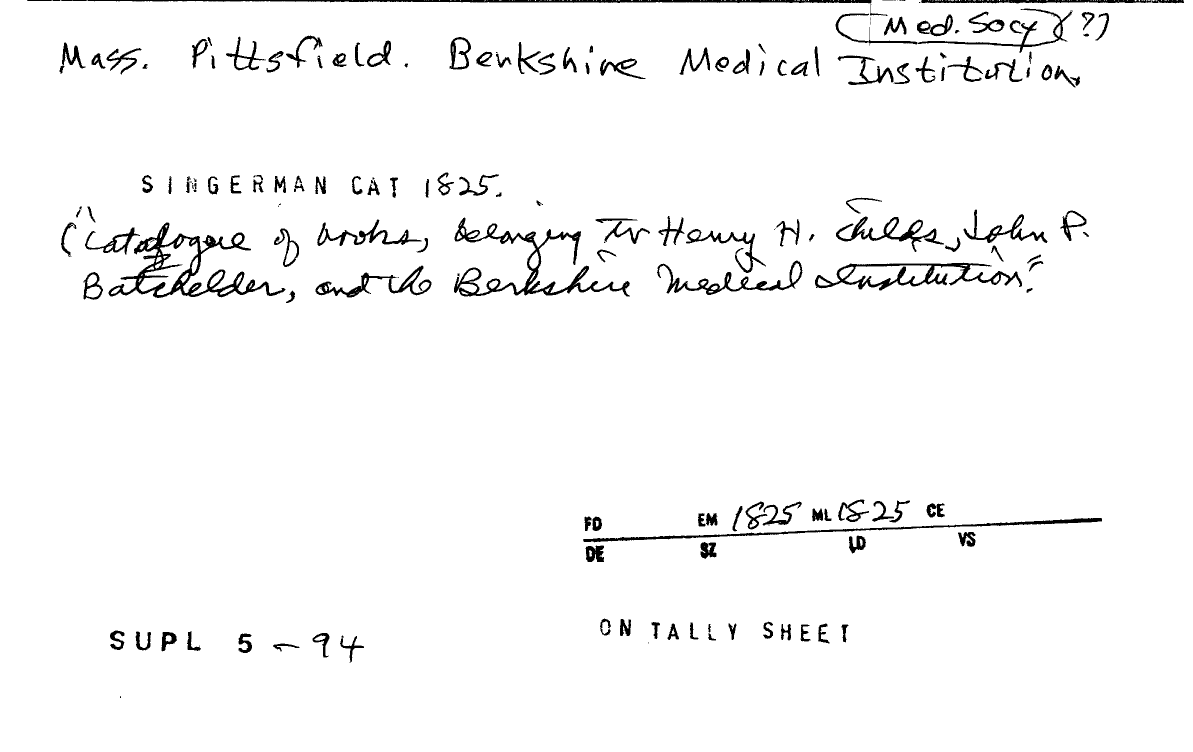 Med. Socy (?)
Mass. Pittsfield. Berkshire Medical Institution.
SINGERMAN CAT 1825.
("Catalogue of books, belonging to Henry H. Childs, John P.
Batchelder, and the Berkshire Medical Institution."
FD EM 1825 ML 1825 CE
DE SZ LD VS
SUPL 5-94
ON TALLY SHEET